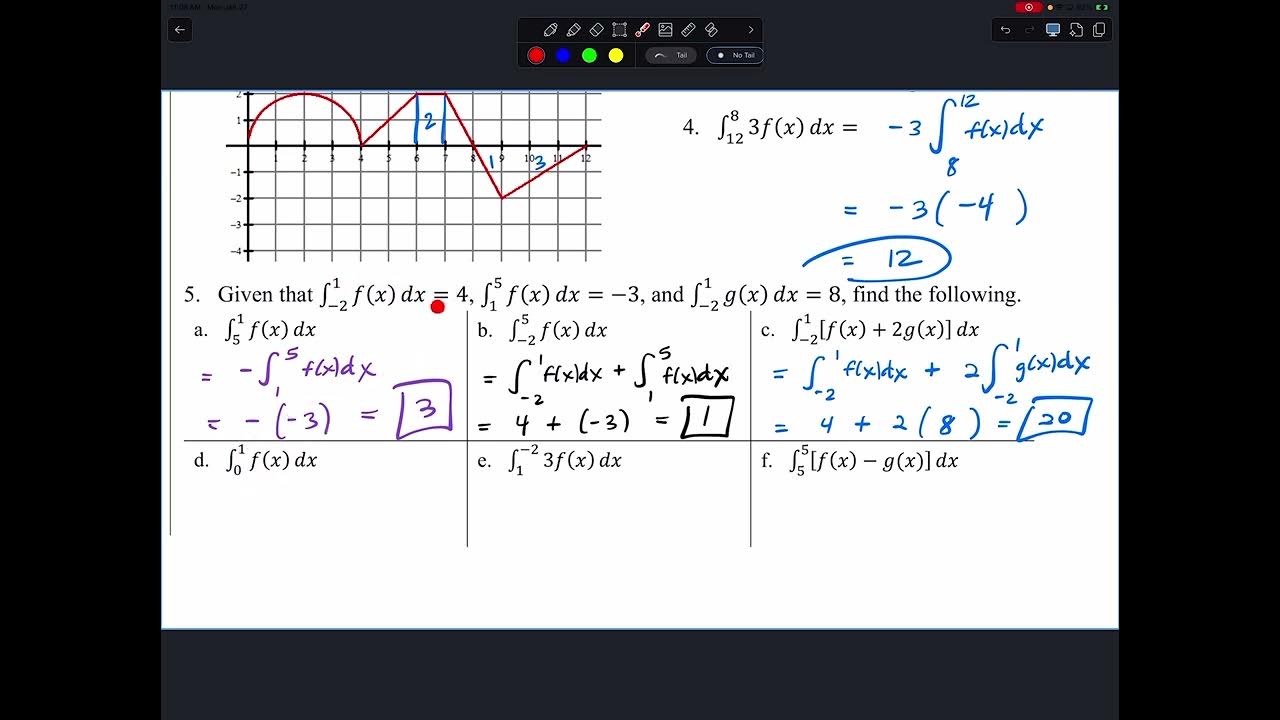 11:08 AM Mon Jan 27
92%
Tail
No Tail
2
1
-1
-2
-3
-4
1 2 3 4 5 6 7 8 9 10 11 12
2
1
3
4. ∫₁₂⁸ 3f(x) dx = -3 ∫₈¹² f(x)dx
= -3(-4)
= 12
5. Given that ∫₋₂¹ f(x) dx = 4, ∫₁⁵ f(x) dx = −3, and ∫₋₂¹ g(x) dx = 8, find the following.
a. ∫₅¹ f(x) dx
= -∫₁⁵ f(x)dx
= -(-3) = 3
b. ∫₋₂⁵ f(x) dx
= ∫₋₂¹ f(x)dx + ∫₁⁵ f(x)dx
= 4 + (-3) = 1
c. ∫₋₂¹[f(x) + 2g(x)] dx
= ∫₋₂¹ f(x)dx + 2∫₋₂¹ g(x)dx
= 4 + 2(8) = 20
d. ∫₀¹ f(x) dx
e. ∫₁⁻² 3f(x) dx
f. ∫₅⁵[f(x) − g(x)] dx